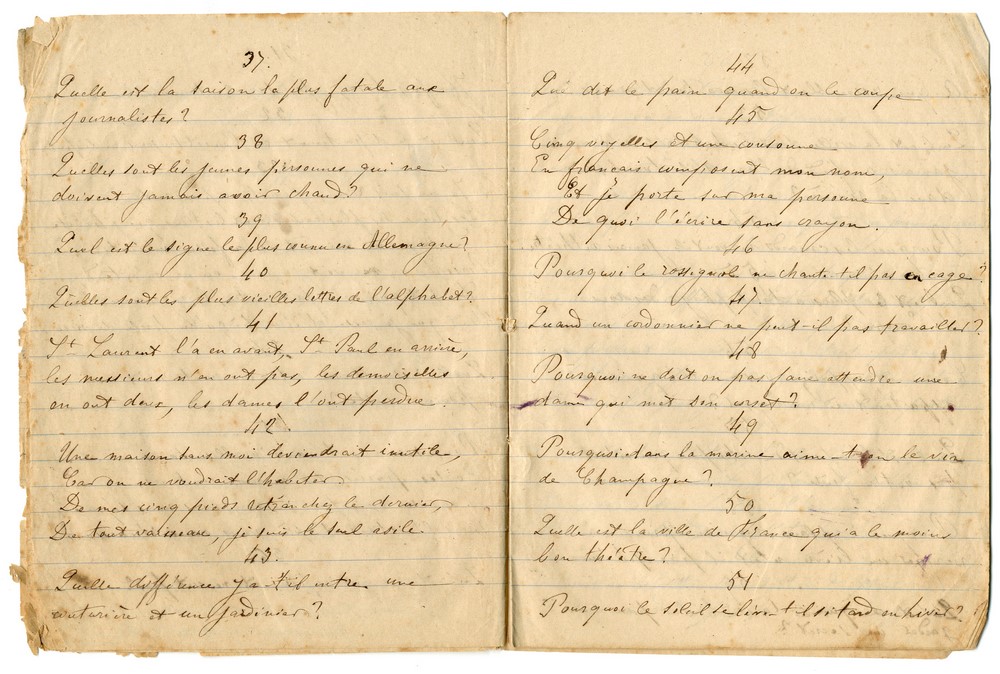 37.
Quelle est la saison la plus fatale aux
journalistes?
38
Quelles sont les jeunes personnes qui ne
doivent jamais avoir chaud?
39
Quel est le signe le plus connu en Allemagne?
40
Quelles sont les plus vieilles lettres de l'alphabet?
41
St Laurent l'a en avant, St Paul en arrière,
les messieurs n'en ont pas, les demoiselles
en ont deux, les dames l'ont perdue.
42.
Une maison sans moi deviendrait inutile,
Car on ne voudrait l'habiter
De mes cinq pieds retranchez le dernier,
De tout vaisseau, je suis le seul asile
43.
Quelle différence y a-t-il entre une
couturière et un jardinier?
44
Que dit le pain quand on le coupe
45
Cinq voyelles et une consonne
En français composent mon nom,
Et je porte sur ma personne
De quoi l'écrire sans crayon.
46
Pourquoi le rossignol ne chante-t-il pas en cage?
47.
Quand un cordonnier ne peut-il pas travailler?
48
Pourquoi ne doit on pas faire attendre une
dame qui met son corset?
49
Pourquoi dans la marine aime-t-on le vin
de Champagne?
50
Quelle est la ville de France qui a le moins
bon théâtre?
51
Pourquoi le soleil se lève-t-il si tard en hiver?